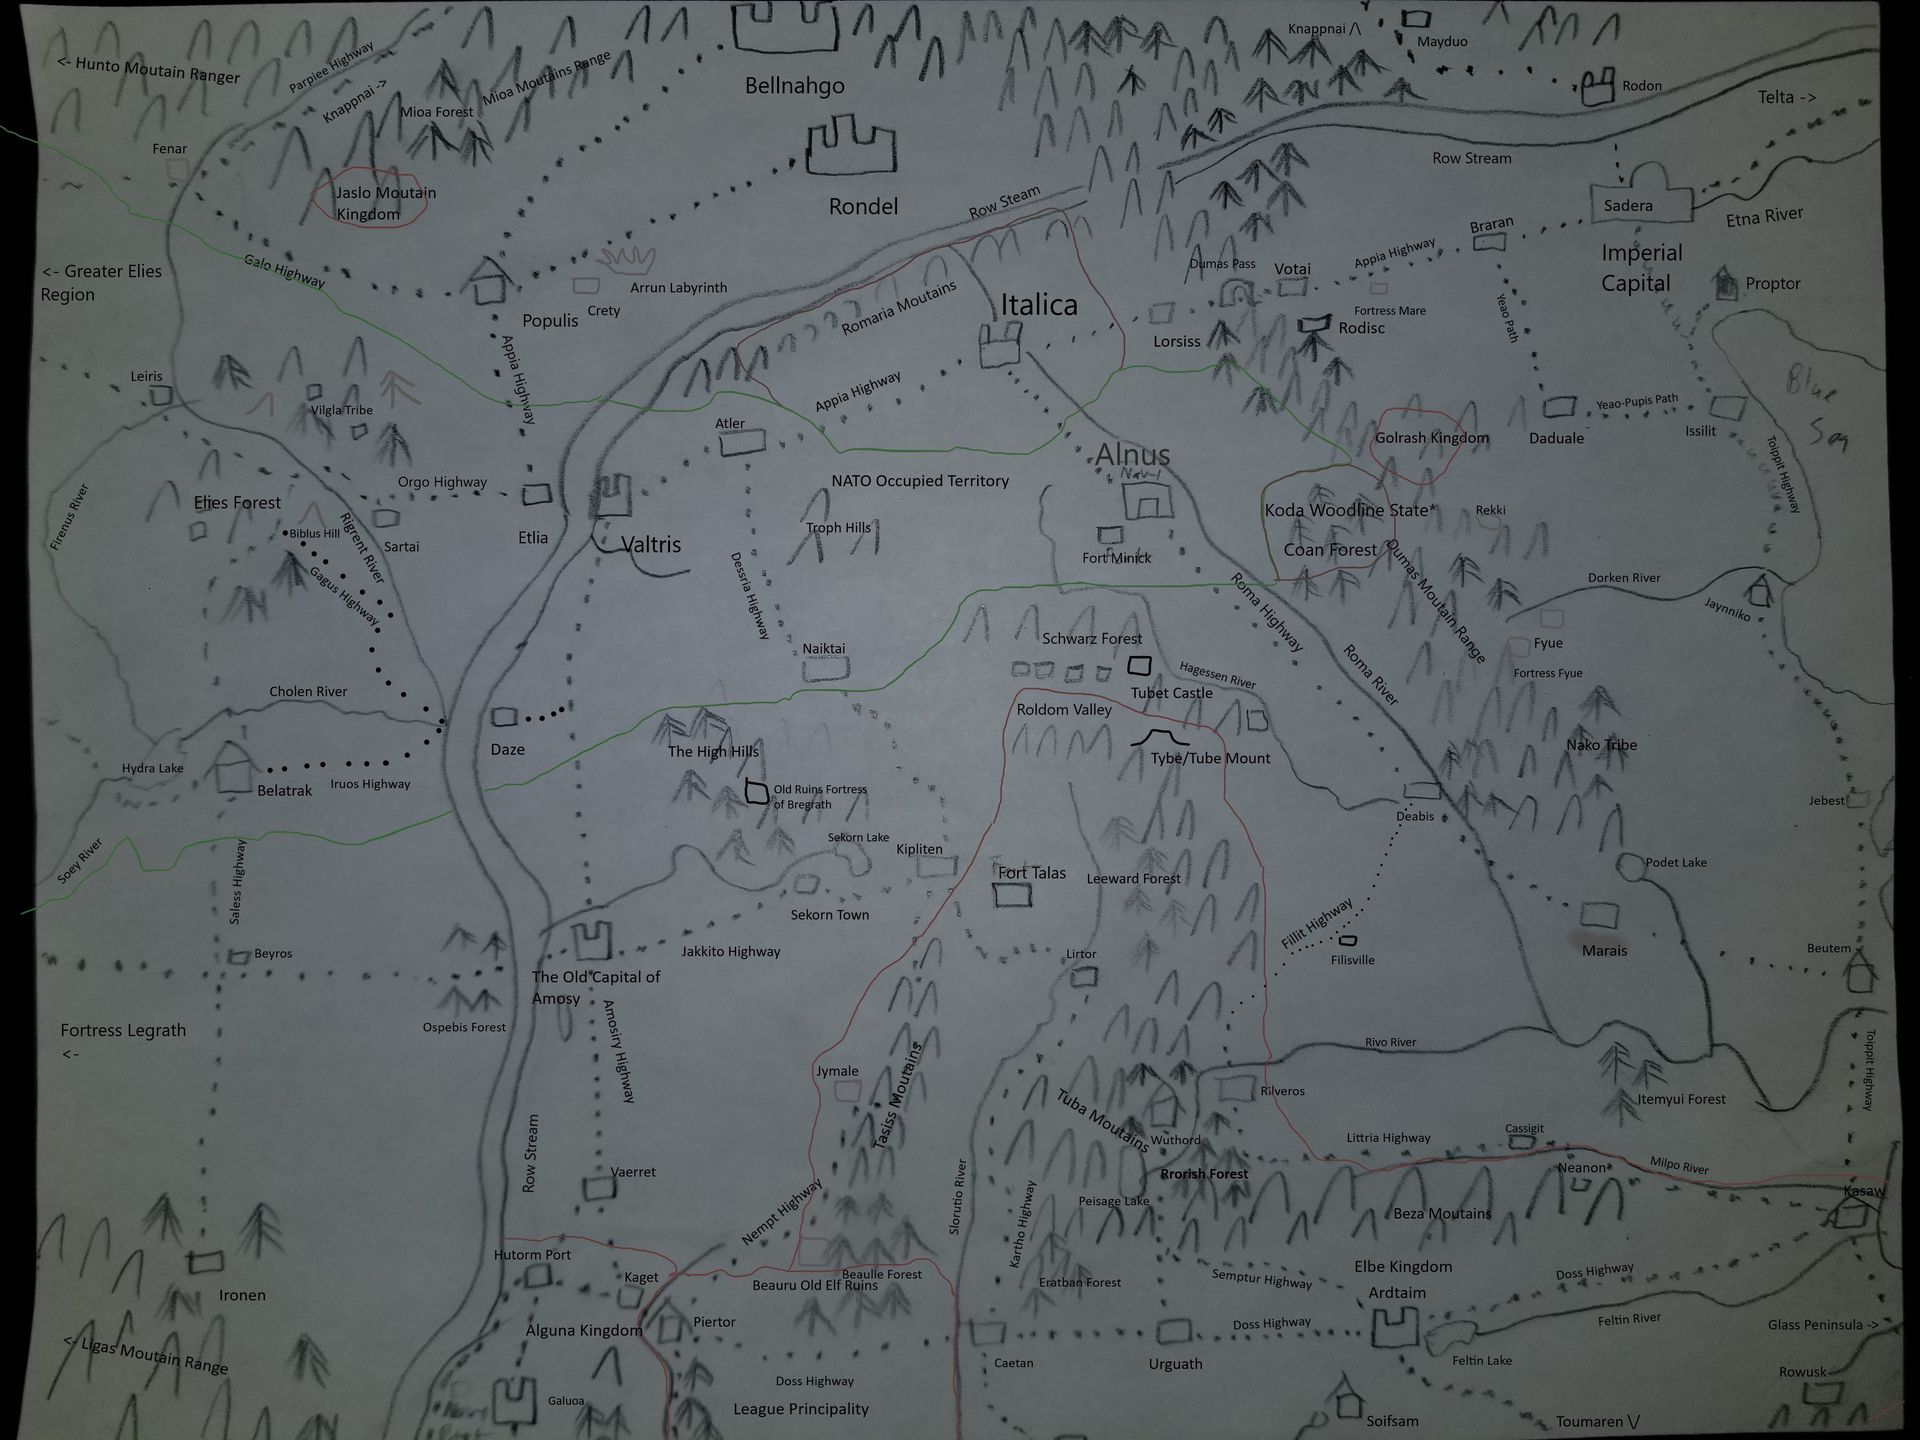 <- Hunto Moutain Ranger
Parpiee Highway
Knappnai ->
Mioa Forest
Mioa Moutains Range
Bellnahgo
Knappnai /\
Mayduo
Rodon
Telta ->
Fenar
Jaslo Moutain
Kingdom
Rondel
Row Steam
Row Stream
Sadera
Etna River
Braran
Imperial
Capital
<- Greater Elies
Region
Galo Highway
Populis
Crety
Arrun Labyrinth
Romaria Moutains
Italica
Dumas Pass
Votai
Appia Highway
Fortress Mare
Proptor
Lorsiss
Rodisc
Yeao Path
Leiris
Vilgla Tribe
Appia Highway
Appia Highway
Atler
Golrash Kingdom
Daduale
Yeao-Pupis Path
Issilit
Blue
Toippit Highway
Alnus
Orgo Highway
NATO Occupied Territory
Elies Forest
Firenus River
Biblus Hill
Rigrent River
Sartai
Etlia
Valtris
Troph Hills
Fort Minick
Koda Woodline State*
Rekki
Coan Forest
Dumas Moutain Range
Gagus Highway
Dessria Highway
Roma Highway
Dorken River
Jaynniko
Schwarz Forest
Naiktai
Fyue
Fortress Fyue
Hagessen River
Roma River
Cholen River
Tubet Castle
Roldom Valley
Daze
The High Hills
Tybe/Tube Mount
Nako Tribe
Hydra Lake
Belatrak
Iruos Highway
Old Ruins Fortress
of Bregrath
Deabis
Jebest
Soey River
Saless Highway
Sekorn Lake
Kipliten
Fort Talas
Leeward Forest
Podet Lake
Sekorn Town
Fillit Highway
Marais
Beyros
The Old Capital of
Amosy
Jakkito Highway
Lirtor
Filisville
Beutem
Fortress Legrath
<-
Ospebis Forest
Amosiry Highway
Rivo River
Toippit Highway
Jymale
Tasiss Moutains
Tuba Moutains
Rilveros
Itemyui Forest
Wuthord
Littria Highway
Cassigit
Row Stream
Vaerret
Slorutio River
Rrorish Forest
Neanon
Milpo River
Kasaw
Peisage Lake
Nempt Highway
Kartho Highway
Beza Moutains
Hutorm Port
Kaget
Beaulle Forest
Beauru Old Elf Ruins
Eratban Forest
Semptur Highway
Elbe Kingdom
Doss Highway
Ironen
Ardtaim
Alguna Kingdom
Piertor
Doss Highway
Feltin River
Glass Peninsula ->
<- Ligas Moutain Range
Caetan
Urguath
Feltin Lake
Doss Highway
Rowusk
Galuoa
League Principality
Soifsam
Toumaren \/